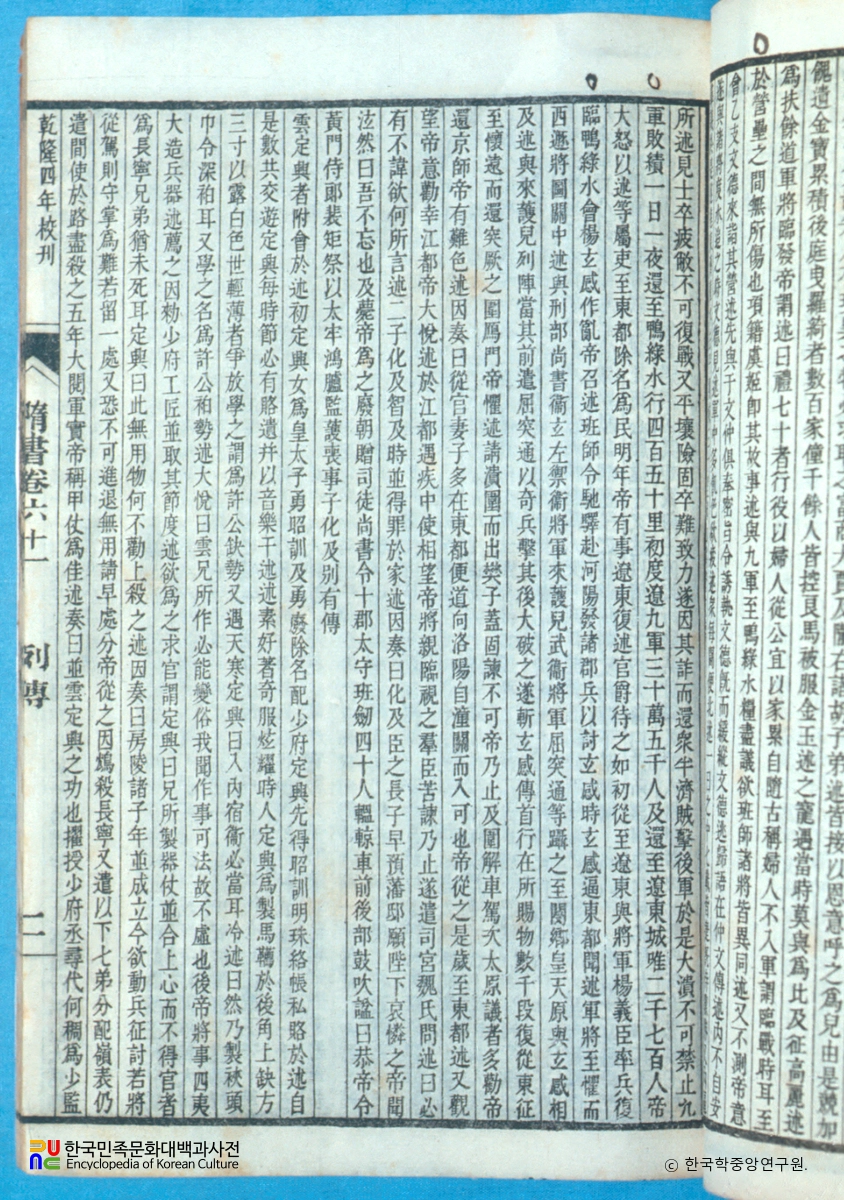 饋遺金寶累積後庭曳羅綺者數百家僮千餘人皆控良馬被服金玉述之寵遇當時莫與爲比及征高麗述
爲扶餘道軍將臨發帝謂述曰禮七十者行役以婦人從公宜以家累自隨古稱婦人不入軍謂臨戰時耳至
於營壘之間無所傷也項籍虞姬卽其故事述與九軍至鴨綠水糧盡議欲班師諸將皆異同述又不測帝意
會乙支文德來詣其營述先與于文仲俱奉密旨令誘執文德旣而緩縱文德逃歸語在仲文傳述內不自安
遂與諸將渡水追之時文德見述軍中多
所述見士卒疲敝不可復戰又平壤險固卒難致力遂因其詐而還衆半濟賊擊後軍於是大潰不可禁止九
軍敗績一日一夜還至鴨綠水行四百五十里初度遼九軍三十萬五千人及還至遼東城唯二千七百人帝
大怒以述等屬吏至東都除名爲民明年帝有事遼東復述官爵待之如初從至遼東與將軍楊義臣率兵復
臨鴨綠水會楊玄感作亂帝召述班師令馳驛赴河陽發諸郡兵以討玄感時玄感逼東都聞述軍將至懼而
西遯將圖關中述與刑部尚書衞玄左禦衞將軍來護兒武衞將軍屈突通等躡之至閿鄉皇天原與玄感相
及述與來護兒列陣當其前遣屈突通以奇兵擊其後大破之遂斬玄感傳首行在所賜物數千段復從東征
至懷遠而還突厥之圍鴈門帝懼述請潰圍而出樊子蓋固諫不可帝乃止及圍解車駕次太原議者多勸帝
還京師帝有難色述因奏曰從官妻子多在東都便道向洛陽自潼關而入可也帝從之是歲至東都述又觀
望帝意勸幸江都帝大悅述於江都遇疾中使相望帝將親臨視之羣臣苦諫乃止遂遣司宮魏氏問述曰必
有不諱欲何所言述二子化及智及時並得罪於家述因奏曰化及臣之長子早預藩邸願陛下哀憐之帝聞
泫然曰吾不忘也及薨帝爲之廢朝贈司徒尚書令十郡太守班劒四十人轀輬車前後部鼓吹諡曰恭帝令
黃門侍郞裴矩祭以太牢鴻臚監護喪事子化及別有傳
雲定興者附會於述初定興女爲皇太子勇昭訓及勇廢除名配少府定興先得昭訓明珠絡帳私賂於述自
是數共交遊定興每時節必有賂遺幷以音樂干述述素好著奇服炫耀時人定興爲製馬韉於後角上缺方
三寸以露白色世輕薄者爭放學之謂爲許公缺勢又遇天寒定興曰入內宿衞必當耳冷述曰然乃製裌頭
巾令深袙耳又學之名爲許公袙勢述大悅曰雲兄所作必能變俗我聞作事可法故不虛也後帝將事四夷
大造兵器述薦之因勅少府工匠並取其節度述欲爲之求官謂定興曰兄所製器仗並合上心而不得官者
爲長寧兄弟猶未死耳定興曰此無用物何不勸上殺之述因奏曰房陵諸子年並成立今欲動兵征討若將
從駕則守掌爲難若留一處又恐不可進退無用請早處分帝從之因鴆殺長寧又遣以下七弟分配嶺表仍
遣間使於路盡殺之五年大閱軍實帝稱甲仗爲佳述奏曰並雲定興之功也擢授少府丞尋代何稠爲少監
乾隆四年校刊
隋書卷六十一
列傳
二
한국민족문화대백과사전
Encyclopedia of Korean Culture
© 한국학중앙연구원.